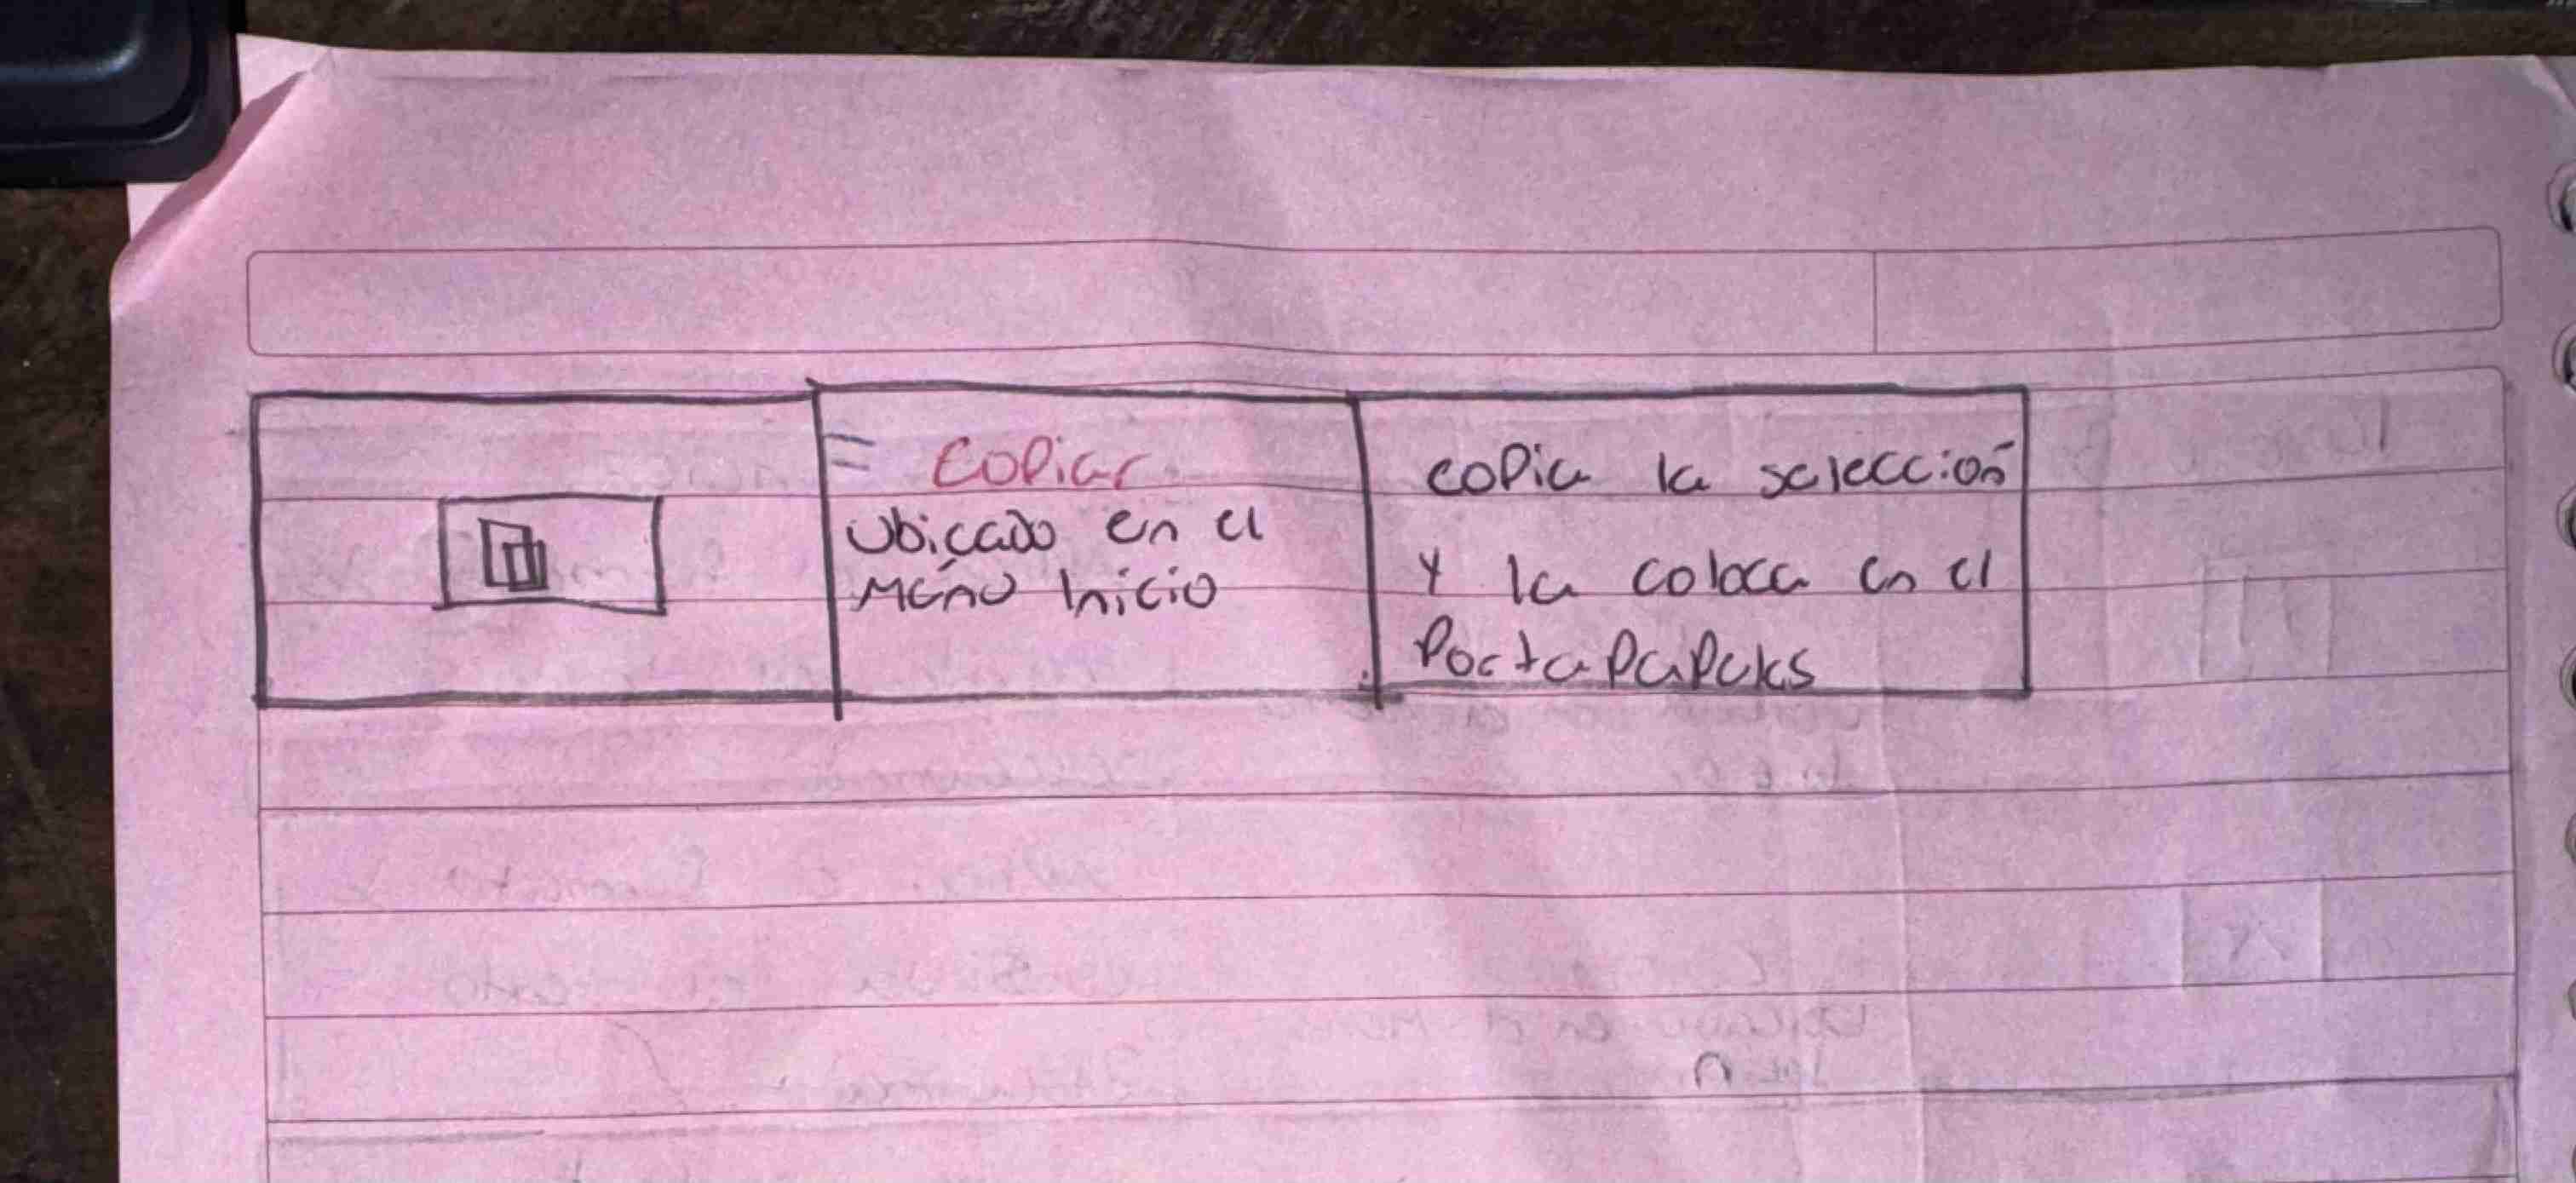 = Copiar
Ubicado en el
Menú Inicio
copia la selección
y la coloca en el
Portapapeles